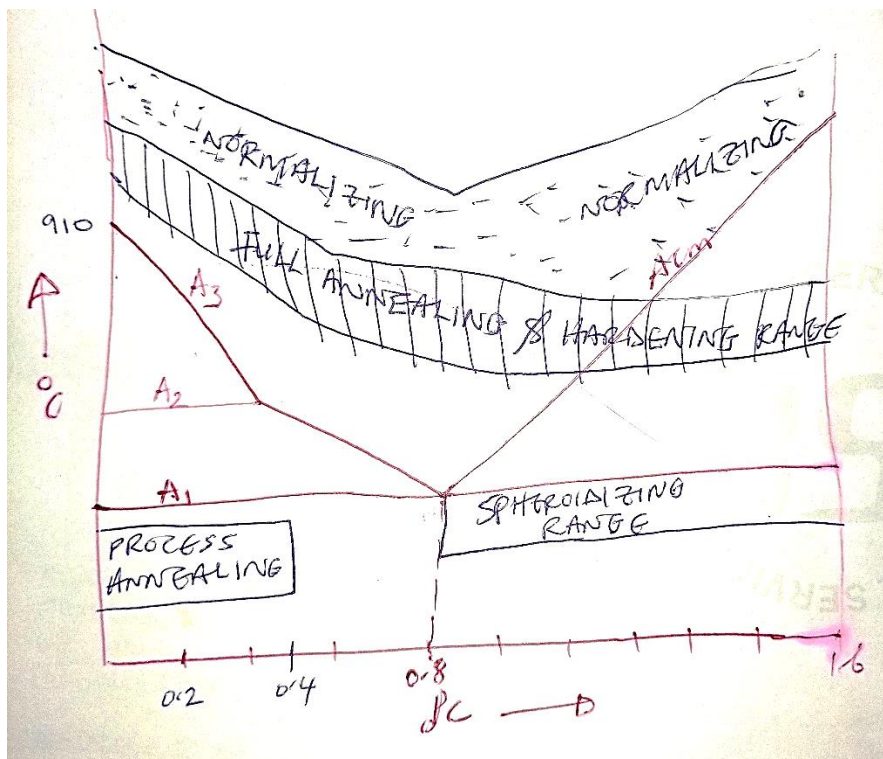 NORMALIZING
NORMALIZING
910
FULL ANNEALING & HARDENING RANGE
A3
Acm
°C
A2
A1
SPHEROIDIZING
RANGE
PROCESS
ANNEALING
0.2
0.4
0.8
1.6